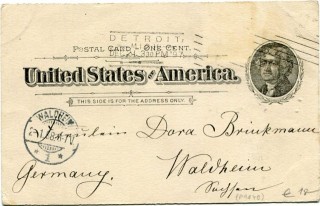 DETROIT,
MICH.
3 30 PM '97
POSTAL CARD — ONE CENT.
United States of America.
THIS SIDE IS FOR THE ADDRESS ONLY.
WALDHEIM
Fräulein Dora Brinkmann
Waldheim
Germany. Sachsen